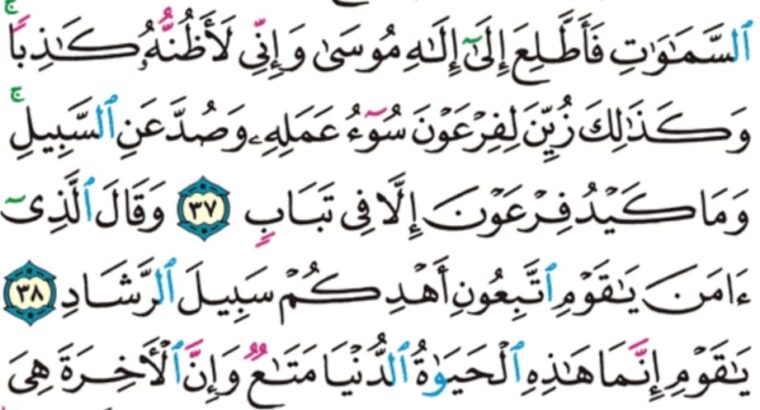 ٱلسَّمَٰوَٰتِ فَأَطَّلِعَ إِلَىٰٓ إِلَٰهِ مُوسَىٰ وَإِنِّي لَأَظُنُّهُۥ كَٰذِبٗاۚ
وَكَذَٰلِكَ زُيِّنَ لِفِرۡعَوۡنَ سُوٓءُ عَمَلِهِۦ وَصُدَّ عَنِ ٱلسَّبِيلِۚ
وَمَا كَيۡدُ فِرۡعَوۡنَ إِلَّا فِي تَبَابٖ ٣٧ وَقَالَ ٱلَّذِيٓ
ءَامَنَ يَٰقَوۡمِ ٱتَّبِعُونِ أَهۡدِكُمۡ سَبِيلَ ٱلرَّشَادِ ٣٨
يَٰقَوۡمِ إِنَّمَا هَٰذِهِ ٱلۡحَيَوٰةُ ٱلدُّنۡيَا مَتَٰعٞ وَإِنَّ ٱلۡأٓخِرَةَ هِيَ